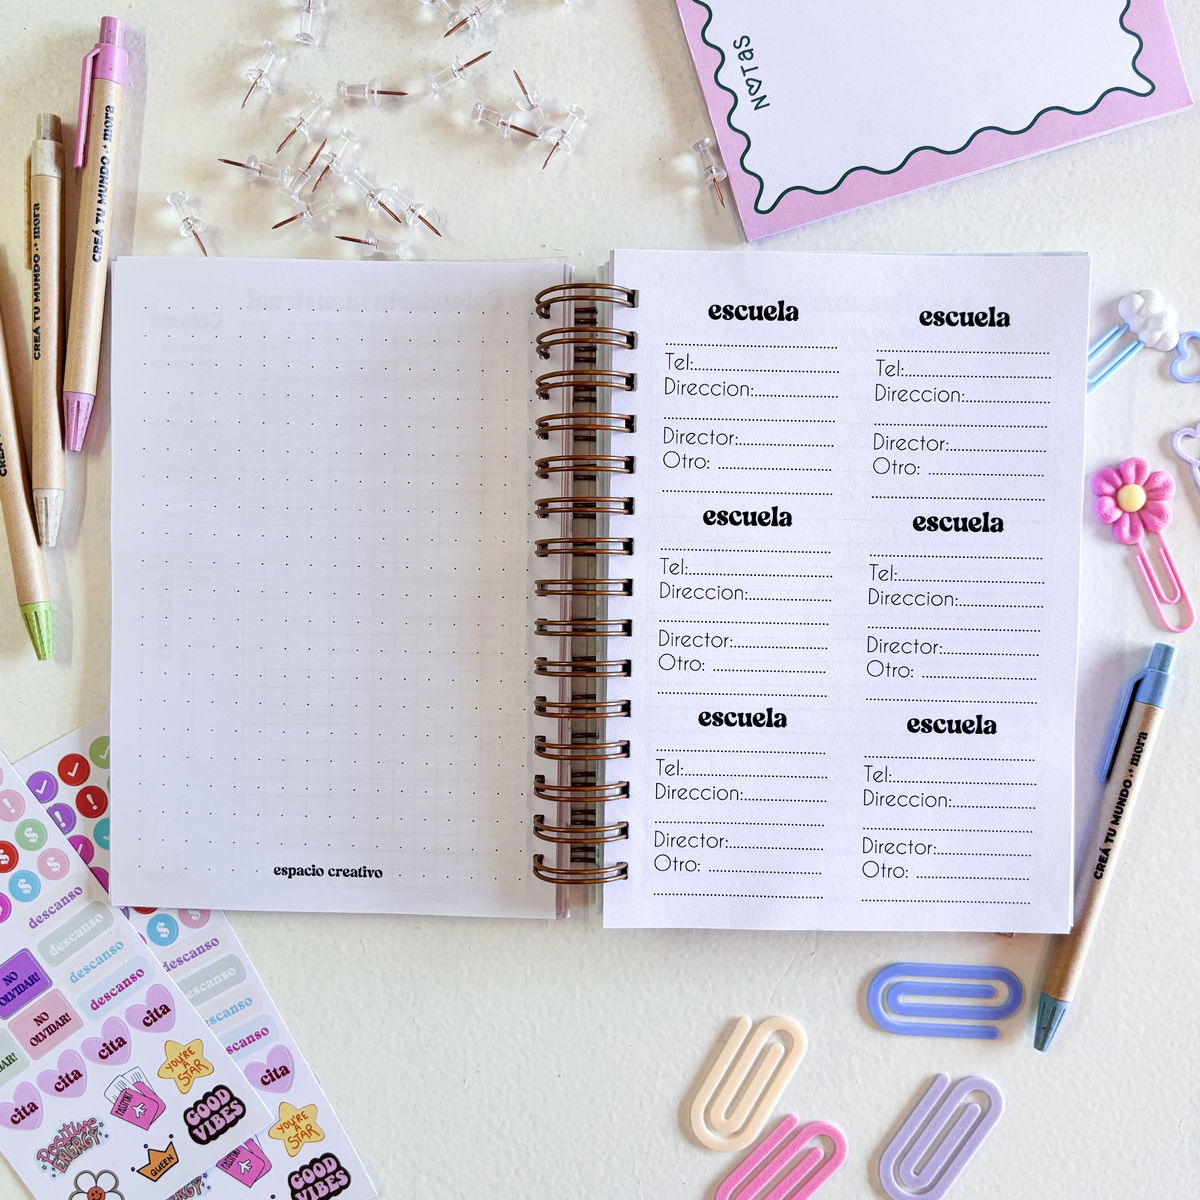 NOTas
CREÁ TU MUNDO mora
CREÁ TU MUNDO mora
CREÁ
espacio creativo
escuela
Tel:
Direccion:
Director:
Otro:
escuela
Tel:
Direccion:
Director:
Otro:
escuela
Tel:
Direccion:
Director:
Otro:
escuela
Tel:
Direccion:
Director:
Otro:
escuela
Tel:
Direccion:
Director:
Otro:
escuela
Tel:
Direccion:
Director:
Otro:
CREÁ TU MUNDO mora
descanso
descanso
descanso
descanso
descanso
descanso
descanso
scanso
NO
OLVIDAR!
NO
OLVIDAR!
cita
cita
cita
cita
cita
YOU'RE
A
STAR
PASSPORT
GOOD
VIBES
Positive
ENERGY
QUEEN
YOU'RE
A
STAR
PASSPORT
GOOD
VIBES